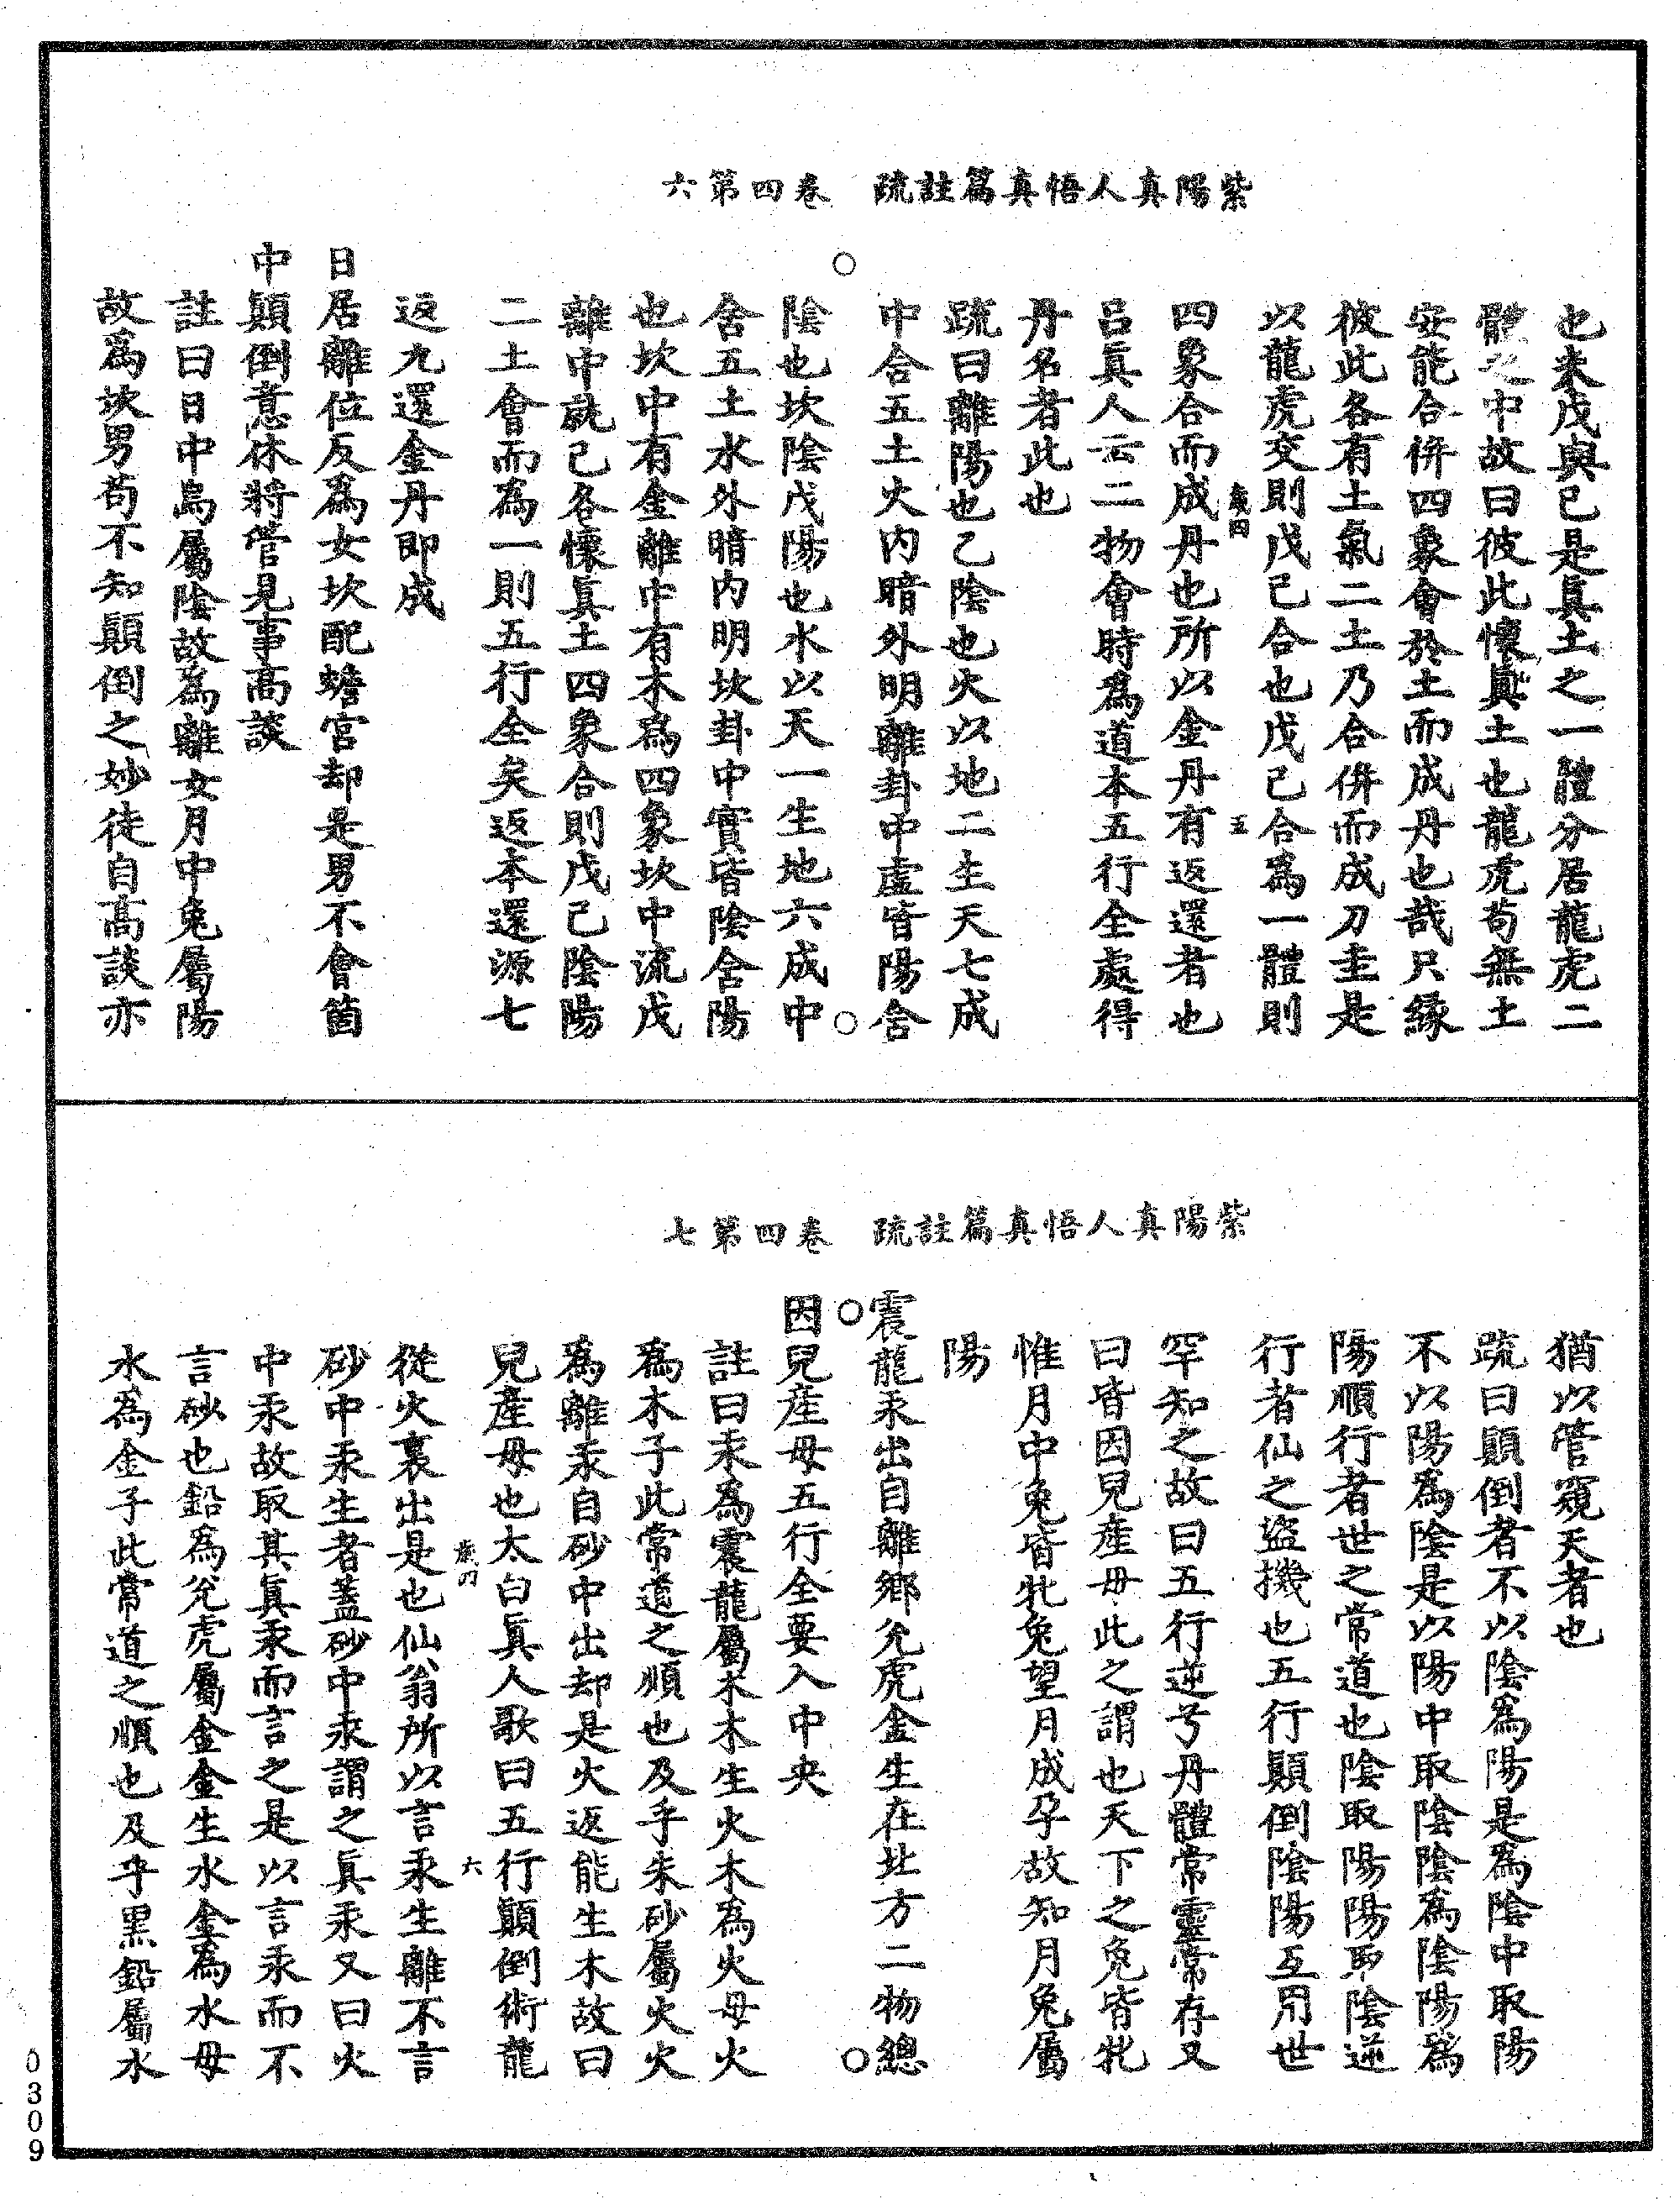 紫陽真人悟真篇註疏　卷四第六
也来戊與己是真土之一體分居龍虎二
體之中故曰彼此懷真土也龍虎苟無土
安能合併四象會於土而成丹也哉只緣
彼此各有土氣二土乃合併而成刀圭是
以龍虎交則戊己合也戊己合為一體則
歲四　五
四象合而成丹也所以金丹有返還者也
呂真人云二物會時為道本五行全處得
丹名者此也
疏曰離陽也乙陰也火以地二生天七成
中合五土火内暗外明離卦中虛皆陽含
○　○
陰也坎陰戊陽也水以天一生地六成中
含五土水外暗内明坎卦中實皆陰含陽
也坎中有金離中有木為四象坎中流戊
離中就己各懷真土四象合則戊己陰陽
二土會而為一則五行全矣返本還源七
返九還金丹即成
日居離位反為女坎配蟾宮却是男不會箇
中顛倒意休將管見事高談
註曰日中烏屬陰故為離女月中兔屬陽
故為坎男苟不知顛倒之妙徒自高談亦
紫陽真人悟真篇註疏　卷四第七
猶以管窺天者也
疏曰顛倒者不以陰為陽是為陰中取陽
不以陽為陰是以陽中取陰陰為陰陽為
陽順行者世之常道也陰取陽陽取陰逆
行者仙之盜機也五行顛倒陰陽互用世
罕知之故曰五行逆兮丹體常靈常存又
曰皆因兒產母此之謂也天下之兔皆牝
惟月中兔皆牝兔望月成孕故知月兔屬
陽
震龍汞出自離鄉兊虎金生在北方二物總
○　○
因兒產母五行全要入中央
註曰汞為震龍屬木木生火木為火母火
為木子此常道之順也及乎朱砂屬火火
為離汞自砂中出却是火返能生木故曰
兒產母也太白真人歌曰五行顛倒術龍
歲四　六
從火裏出是也仙翁所以言汞生離不言
砂中汞生者蓋砂中汞謂之真汞又曰火
中汞故取其真汞而言之是以言汞而不
言砂也鉛為兊虎屬金金生水金為水母
水為金子此常道之順也及乎黑鉛屬水
0309